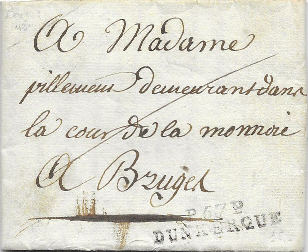 A Madame
pillemens demeurant dans
la cour de la monnoie
A Bruges
P.67.P
DUNKERQUE